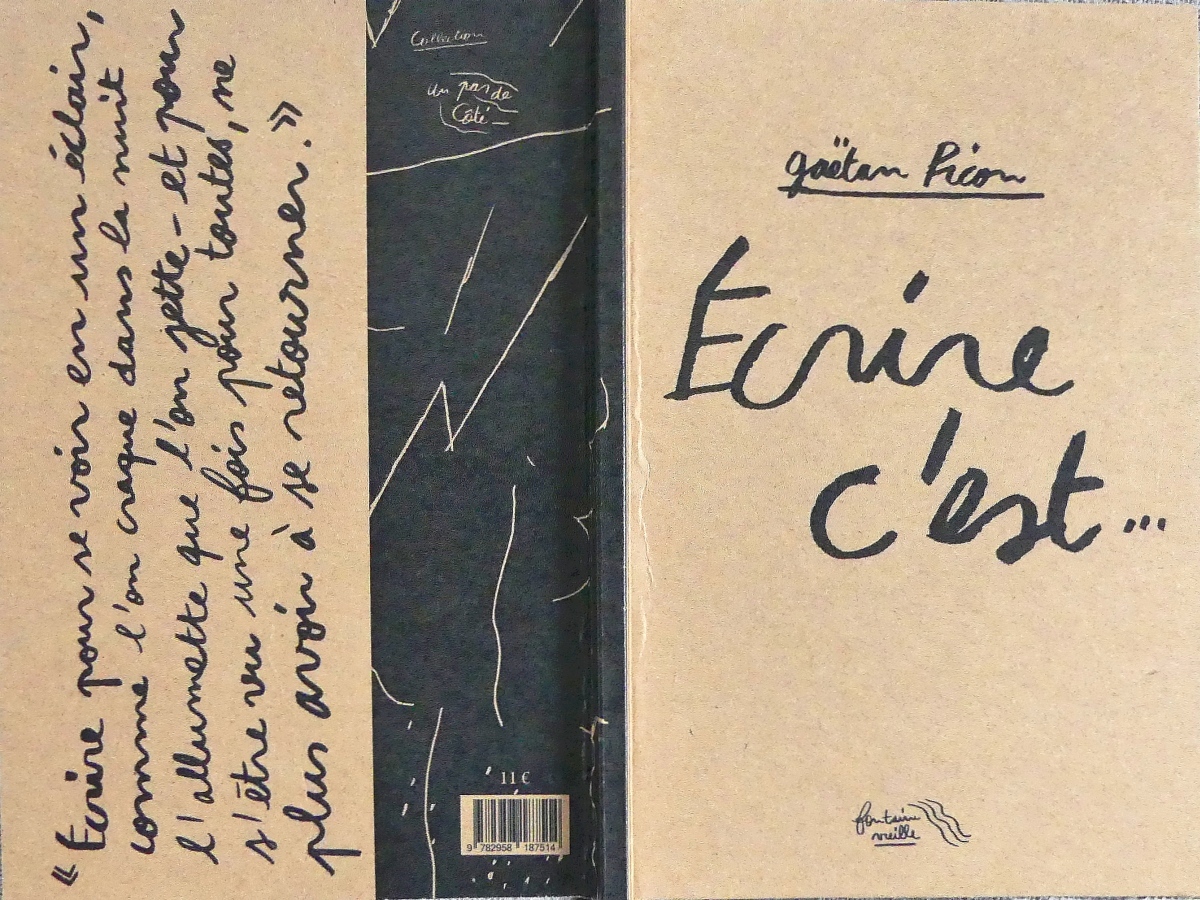 « Écrire pour se voir en un éclair,
comme l'on craque dans la nuit
l'allumette que l'on jette - et pour
s'être vu une fois pour toutes, ne
plus avoir à se retourner. »
Collection
un pas de
Côté
11 €
9 782958 187514
gaëtan Picon
Ecrire
c'est...
fontaine
vieille